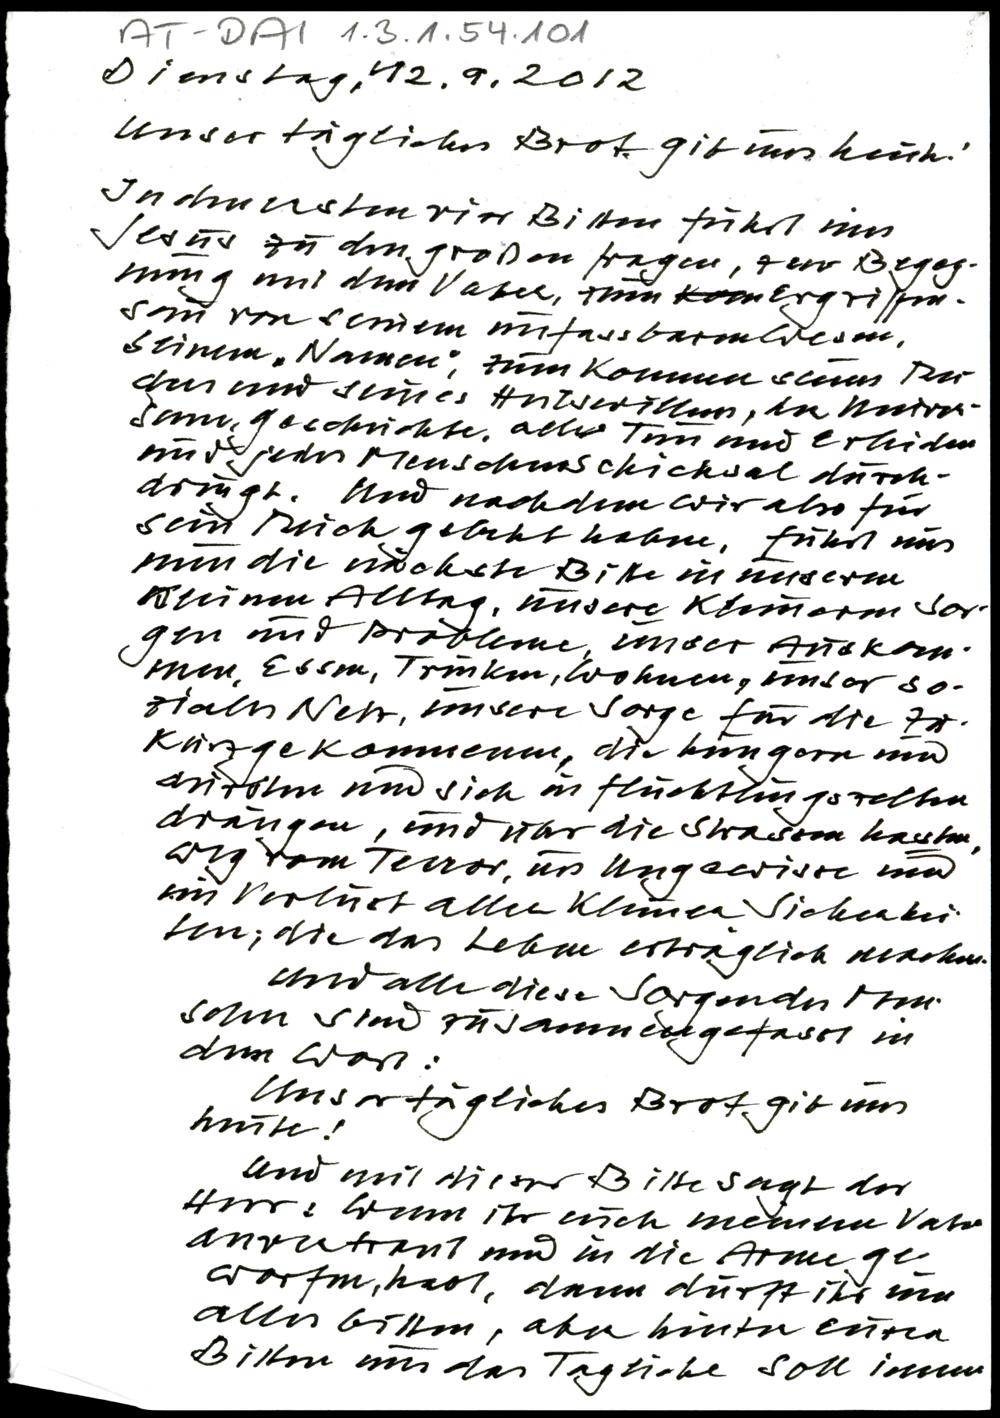 AT-DAI 1.3.1.54.101
Dienstag, 12.9.2012
Unser tägliches Brot gib uns heute!
In den ersten vier Bitten führt uns
Jesus zu den großen Fragen, zur Begeg-
nung mit dem Vater, zum Ergriffen-
sein von seinem unfassbaren Wesen,
seinem „Namen", zum Kommen seines Rei
ches und seines Heilswillens, der
geschichte, alles Tun und Erleiden
und jedes Menschenschicksal durch-
dringt. Und nachdem wir also für
sein Reich gebetet haben, führt uns
nun die nächste Bitte in unseren
kleinen Alltag, unsere kleineren Sor-
gen und Probleme, unser Auskom-
men, Essen, Trinken, Wohnen, unser so-
ziales Netz, unsere Sorge für die Zu-
kurzgekommenen, die hungern und
dürsten und sich in Flüchtlingszelten
drängen, und über die Strassen hasten,
weg vom Terror, ins Ungewisse und
im Verlust aller kleinen Sicherhei-
ten, die das Leben erträglich machen.
Und alle diese Sorgen der Men-
schen sind zusammengefasst in
dem Wort:
Unser tägliches Brot gib uns
heute!
Und mit dieser Bitte sagt der
Herr: Wenn ihr euch meinem Vater
anvertraut und in die Arme ge-
worfen habt, dann dürft ihr um
alles bitten, aber hinter euren
Bitten um das Tägliche soll immer